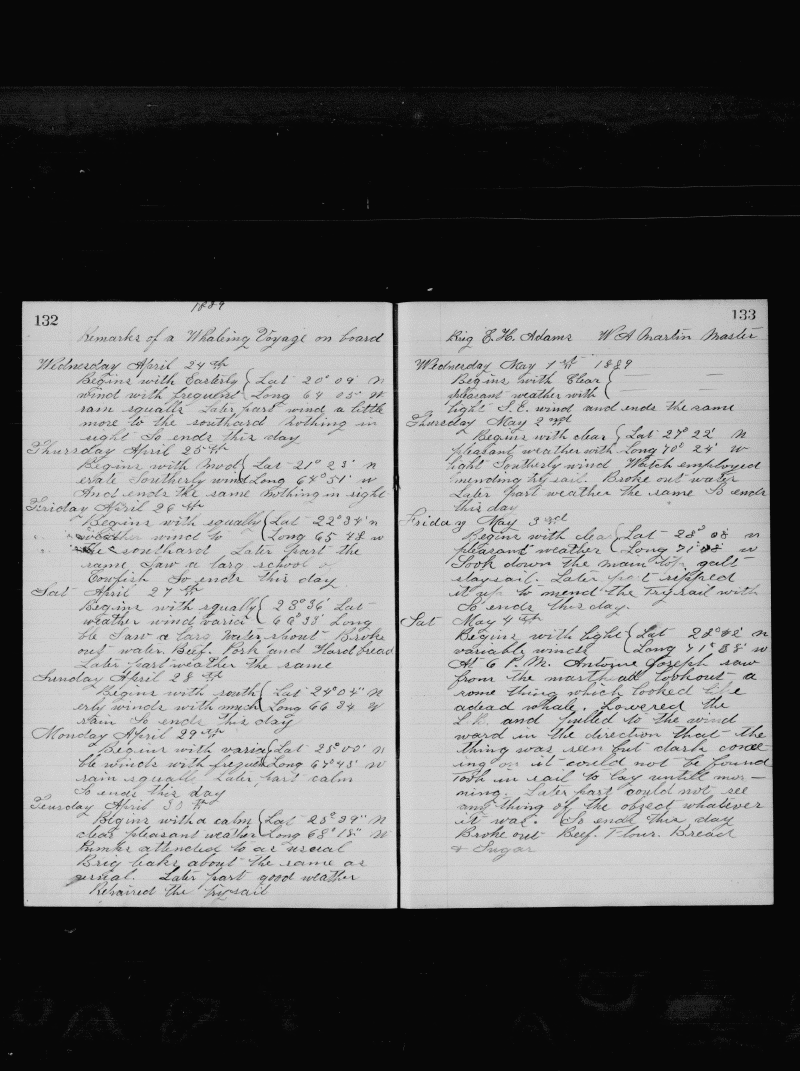 1889
132
Remarks of a Whaleing Voyage on board
Wednesday April 24th
Begins with Easterly { Lat 20° 09' N
wind with frequent Long 64 05' W
rain squalls Later part wind a little
more to the southard Nothing in
sight So ends this day
Thursday April 25th
Begins with Mod { Lat 21° 23' N
erate Southerly wind Long 64° 51' W
And ends the same Nothing in sight
Friday April 26th
Begins with squally { Lat 22° 34' N
weather wind to Long 65 48 W
the southard Later part the
same Saw a larg school of
Cowfish So ends this day
Sat April 27th
Begins with squally { 23° 36' Lat
weather wind varia 66° 33' Long
ble Saw a larg Water spout Broke
out water. Beef. Pork and Hard bread
Later part weather the same
Sunday April 28th
Begins with south { Lat 24° 04" N
erly winds with much Long 66 34 W
rain So ends this day
Monday April 29th
Begins with varia { Lat 25° 00' N
ble winds with frequent Long 67° 43' W
rain squalls Later part calm
So ends this day
Teusday April 30th
Begins with a calm { Lat 25° 29" N
clear pleasant weather Long 68° 18" W
Pumks attended to as useial
Brig leaks about the same as
useial. Later part good weather
Repaired the try sail
133
Brig E. H. Adams W A Martin Master
Wednesday May 1st 1889
Begins with Clear {
pleasant weather with
light S.E. wind and ends the same
Thursday May 2nd
Begins with clear { Lat 27° 22' N
pleasant weather with Long 70° 24' W
light Southerly wind Watch employed
mending try sail. Broke out water
Later part weather the same So ends
this day
Friday May 3rd
Begins with clea { Lat 28° 08 N
pleasant weather Long 71° 08' W
Took down the main top galt
staysail. Later part ripped
it up to mend the Trysail with
So ends this day.
Sat May 4th
Begins with light { Lat 28° 42' N
variable winds Long 71° 38' W
At 6 P.M. Antone Joseph saw
from the marthead lookout a
some thing which looked like
a dead whale. Lowered the
L B. and pulled to the wind
ward in the direction that the
thing was seen but dark come
ing on it could not be found
Took in sail to lay untill mor-
ning. Later part could not see
any thing of the object whatever
it was. So ends this day
Broke out Beef. Flour. Bread
& Sugar